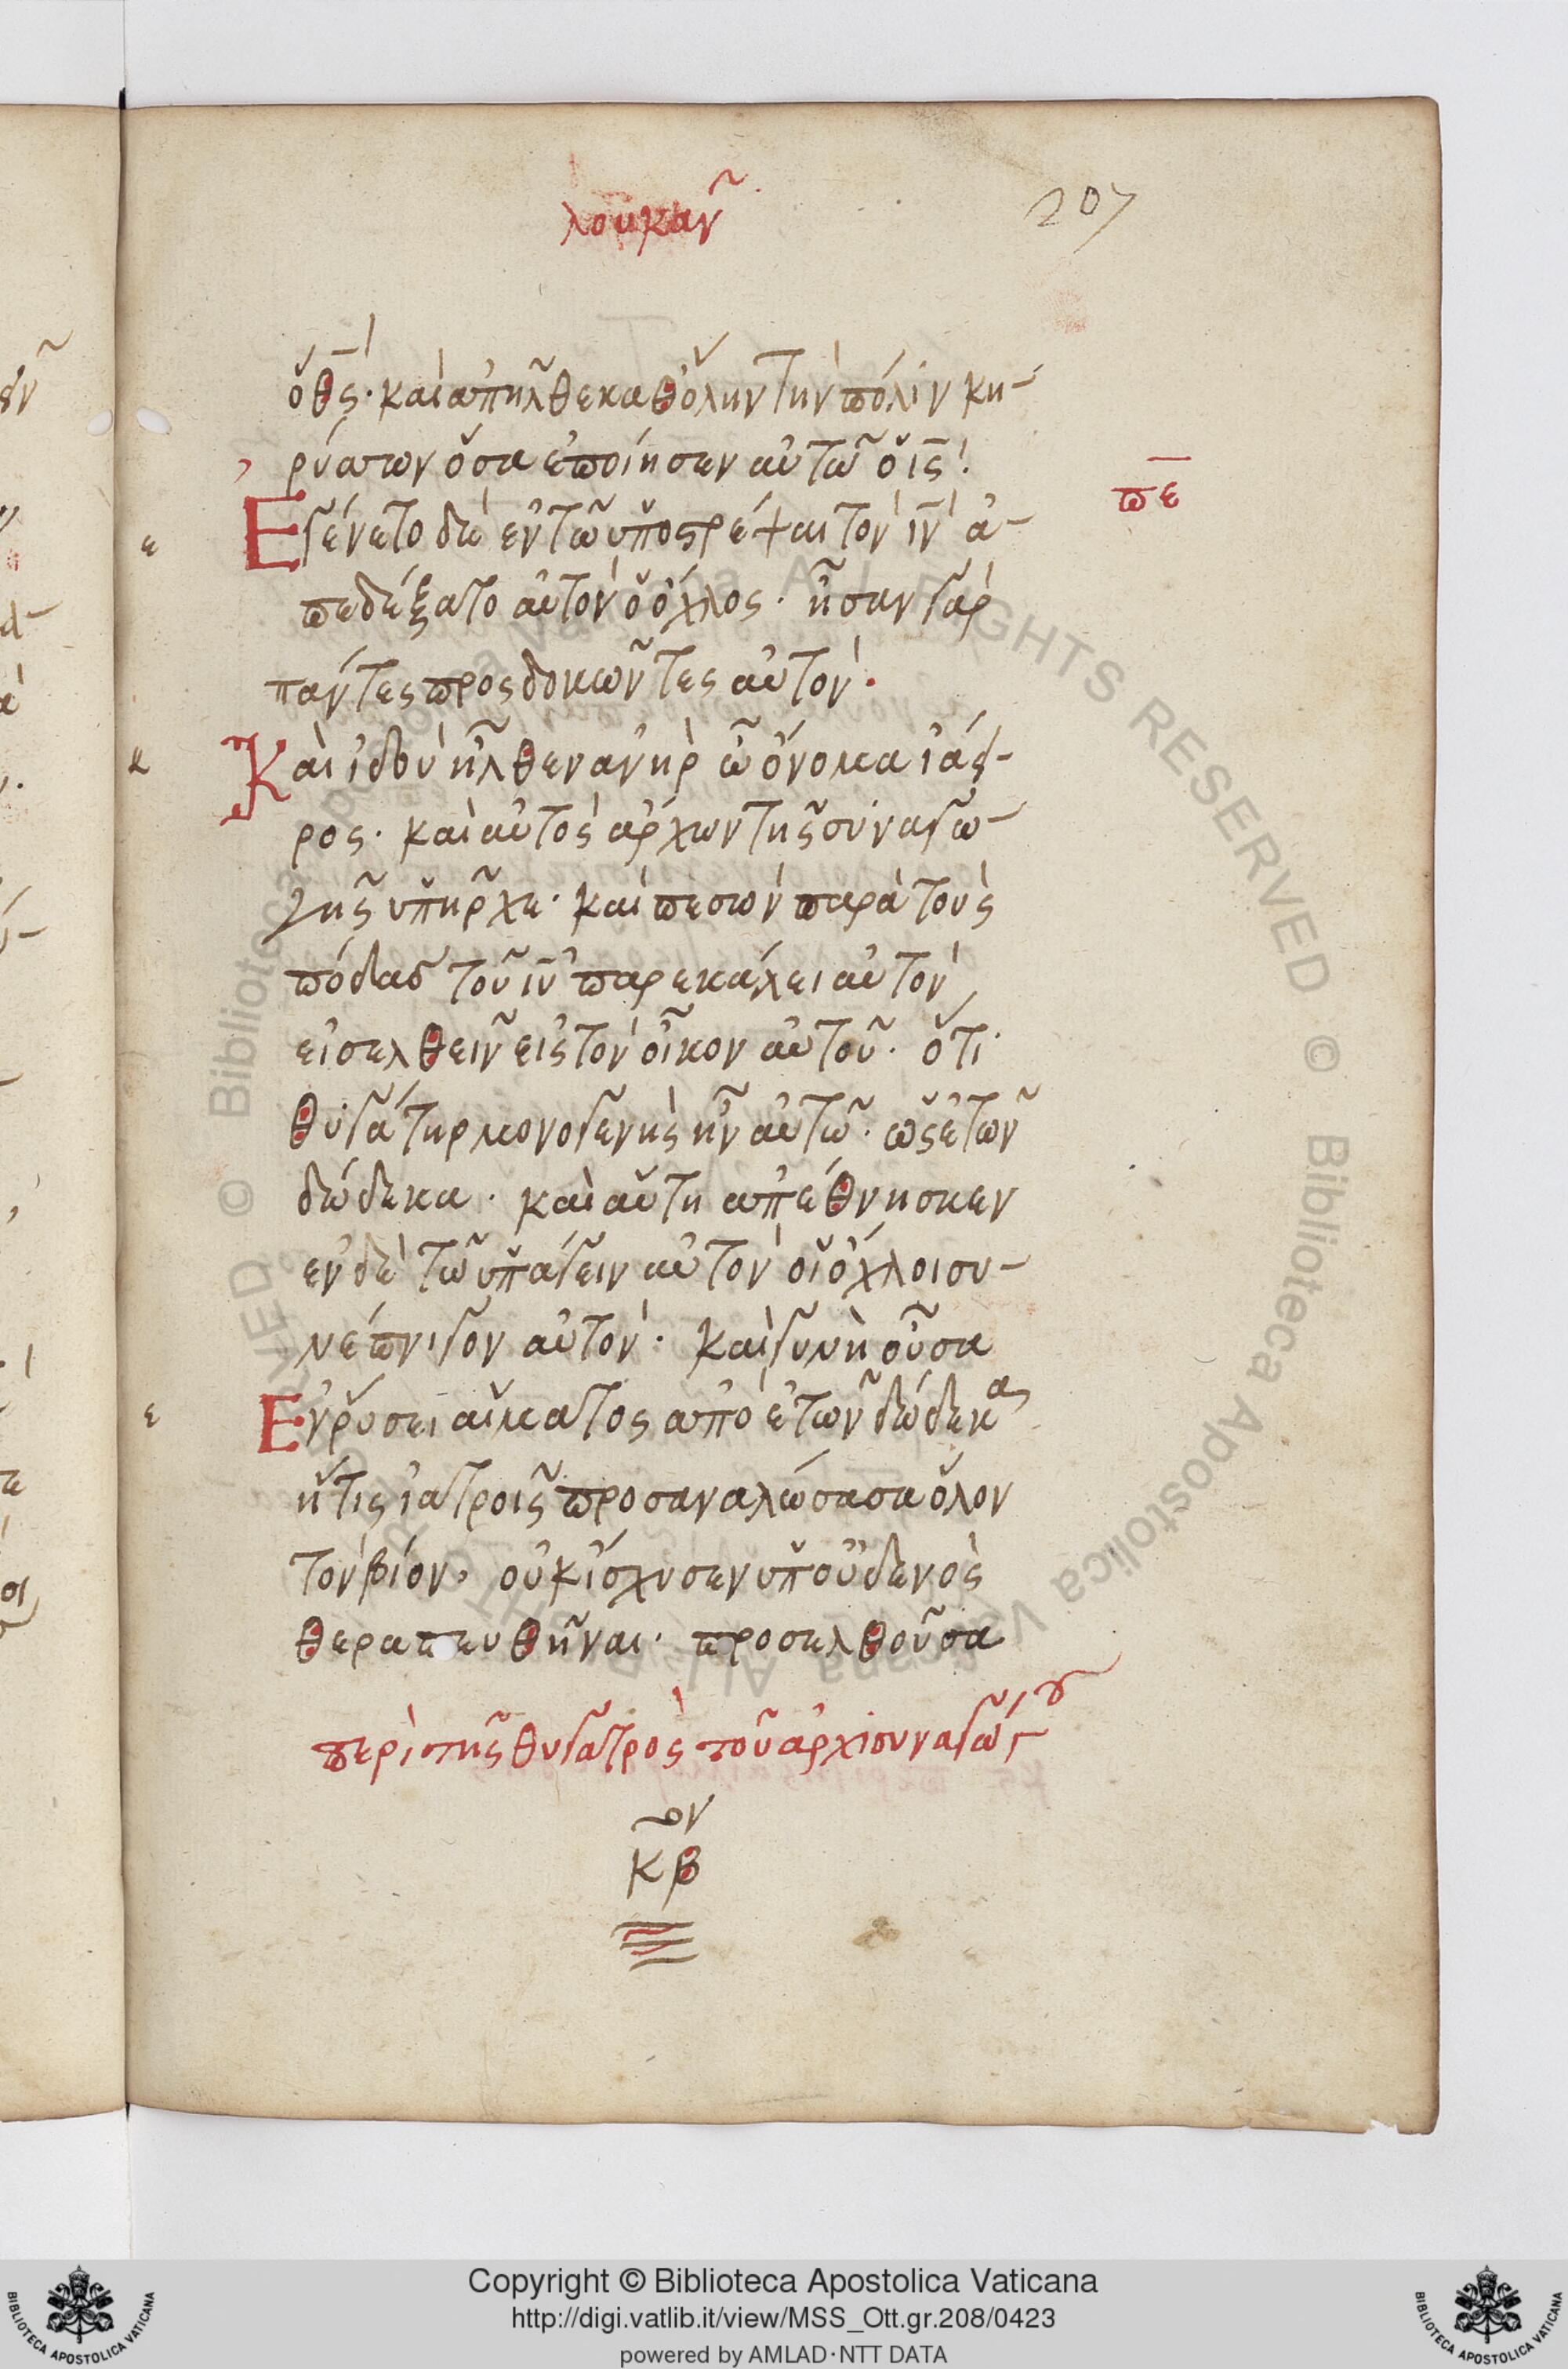 λουκαν
207
ὁ θς· καὶ ἀπῆλθε καθ' ὅλην τὴν πόλιν κη-
ρύσσων ὅσα ἐποίησεν αὐτῶ ὁ ις·
πε
Ἐγένετο δὲ ἐν τῶ ὑποστρέψαι τὸν ιν ἀ-
πεδέξατο αὐτὸν ὁ ὄχλος· ἦσαν γὰρ
πάντες προσδοκῶντες αὐτόν·
Καὶ ἰδοὺ ἦλθεν ἀνὴρ ὧ ὄνομα ἰάει-
ρος· καὶ αὐτὸς ἄρχων τῆς συναγω-
γῆς ὑπῆρχε· καὶ πεσὼν παρὰ τοὺς
πόδας τοῦ ιυ παρεκάλει αὐτὸν
εἰσελθεῖν εἰς τὸν οἶκον αὐτοῦ· ὅτι
θυγάτηρ μονογενὴς ἦν αὐτῶ· ὡς ἐτῶν
δώδεκα· καὶ αὕτη ἀπέθνησκεν
ἐν δὲ τῶ ὑπάγειν αὐτὸν οἱ ὄχλοι συ-
νέπνιγον αὐτόν· καὶ γυνὴ οὖσα
Ἐν ῥύσει αἵματος ἀπὸ ἐτῶν δώδεκα
ἥτις ἰατροῖς προσαναλώσασα ὅλον
τὸν βίον, οὐκ ἴσχυσεν ὑπ' οὐδενὸς
θεραπευθῆναι· προσελθοῦσα
περὶ τῆς θυγατρὸς τοῦ ἀρχισυναγώγου
ον
κβ
Copyright © Biblioteca Apostolica Vaticana
http://digi.vatlib.it/view/MSS_Ott.gr.208/0423
powered by AMLAD·NTT DATA